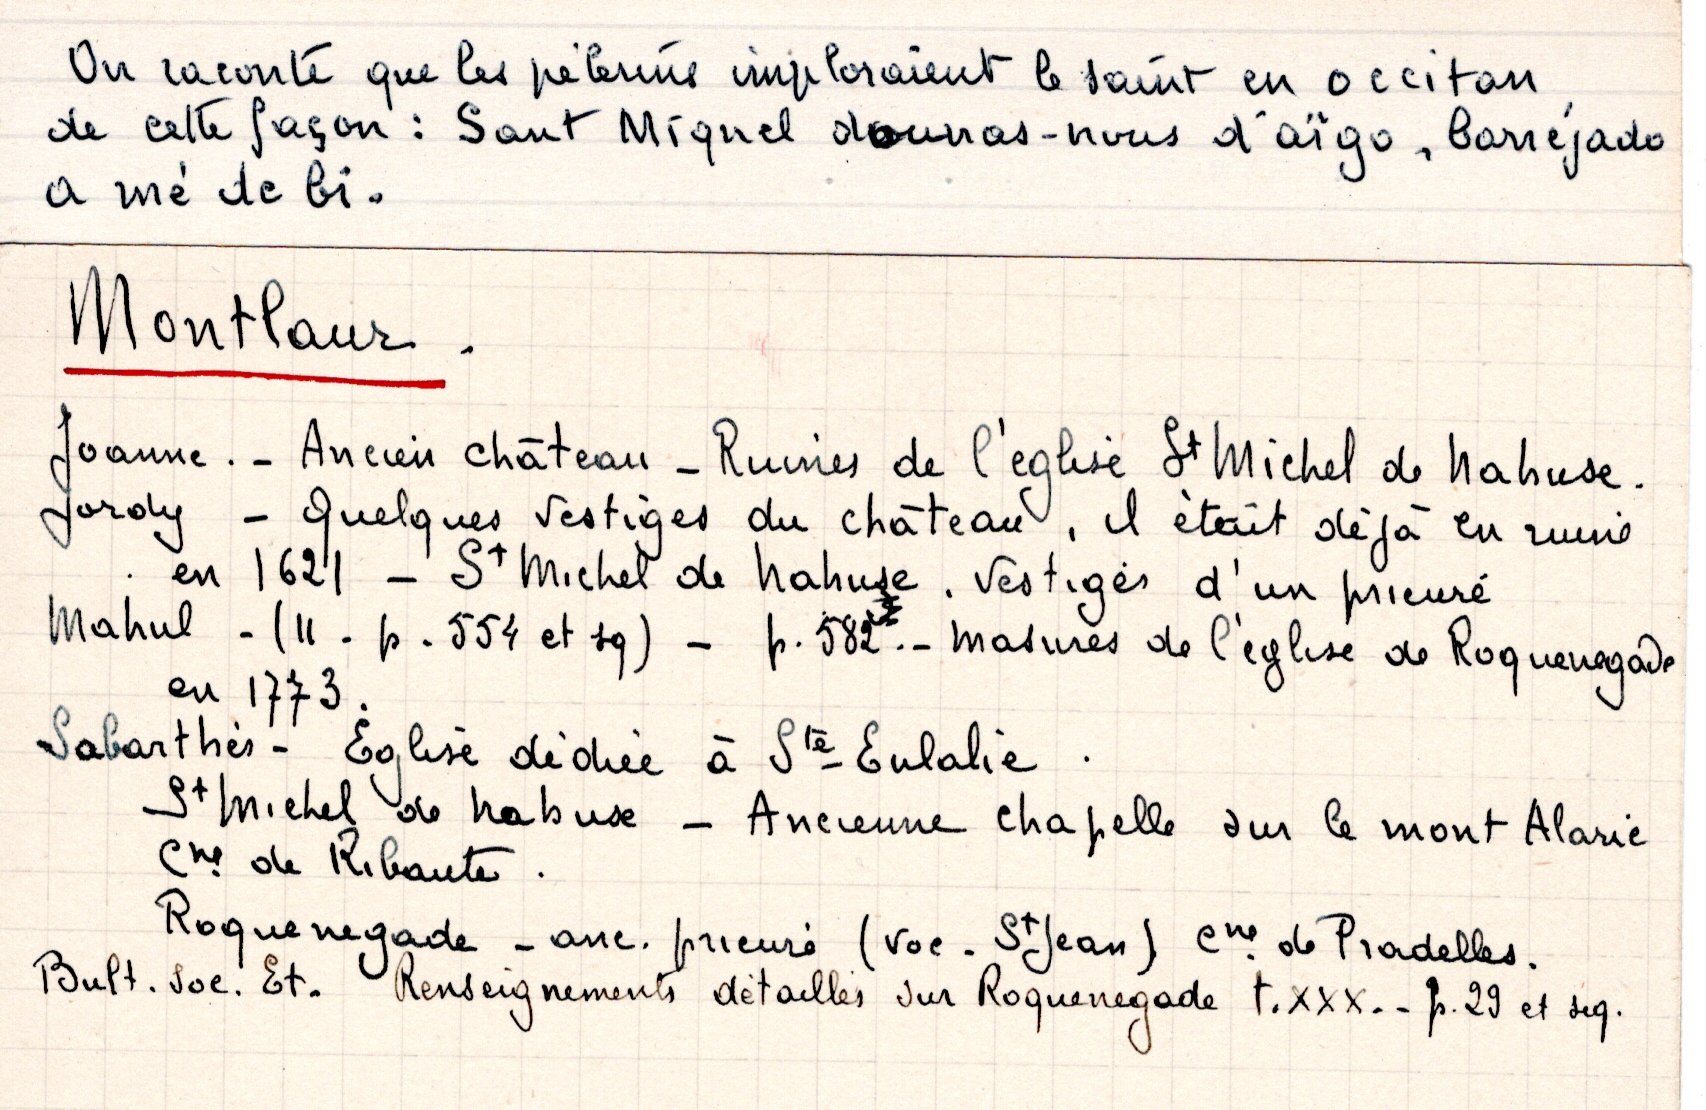 On raconte que les pèlerins imploraient le saint en occitan
de cette façon : Sant Miquel dounas-nous d'aïgo, barréjado
a mé de bi.
Montlaur.
Joanne. - Ancien château - Ruines de l'église St Michel de Nahuse.
Jordy - Quelques vestiges du château, il était déjà en ruine
en 1621 - St Michel de Nahuse. Vestiges d'un prieuré
Mahul - (II - p. 554 et sq) - p. 582. - masures de l'église de Roquenegade
en 1773.
Sabarthès - Église dédiée à Ste Eulalie.
St Michel de Nabuse - Ancienne chapelle sur le mont Alaric
Cne de Ribaute.
Roquenegade - anc. prieuré (voc. St Jean) Cne de Pradelles.
Bult. Soc. Et. Renseignements détaillés sur Roquenegade t. XXX. - p. 29 et seq.